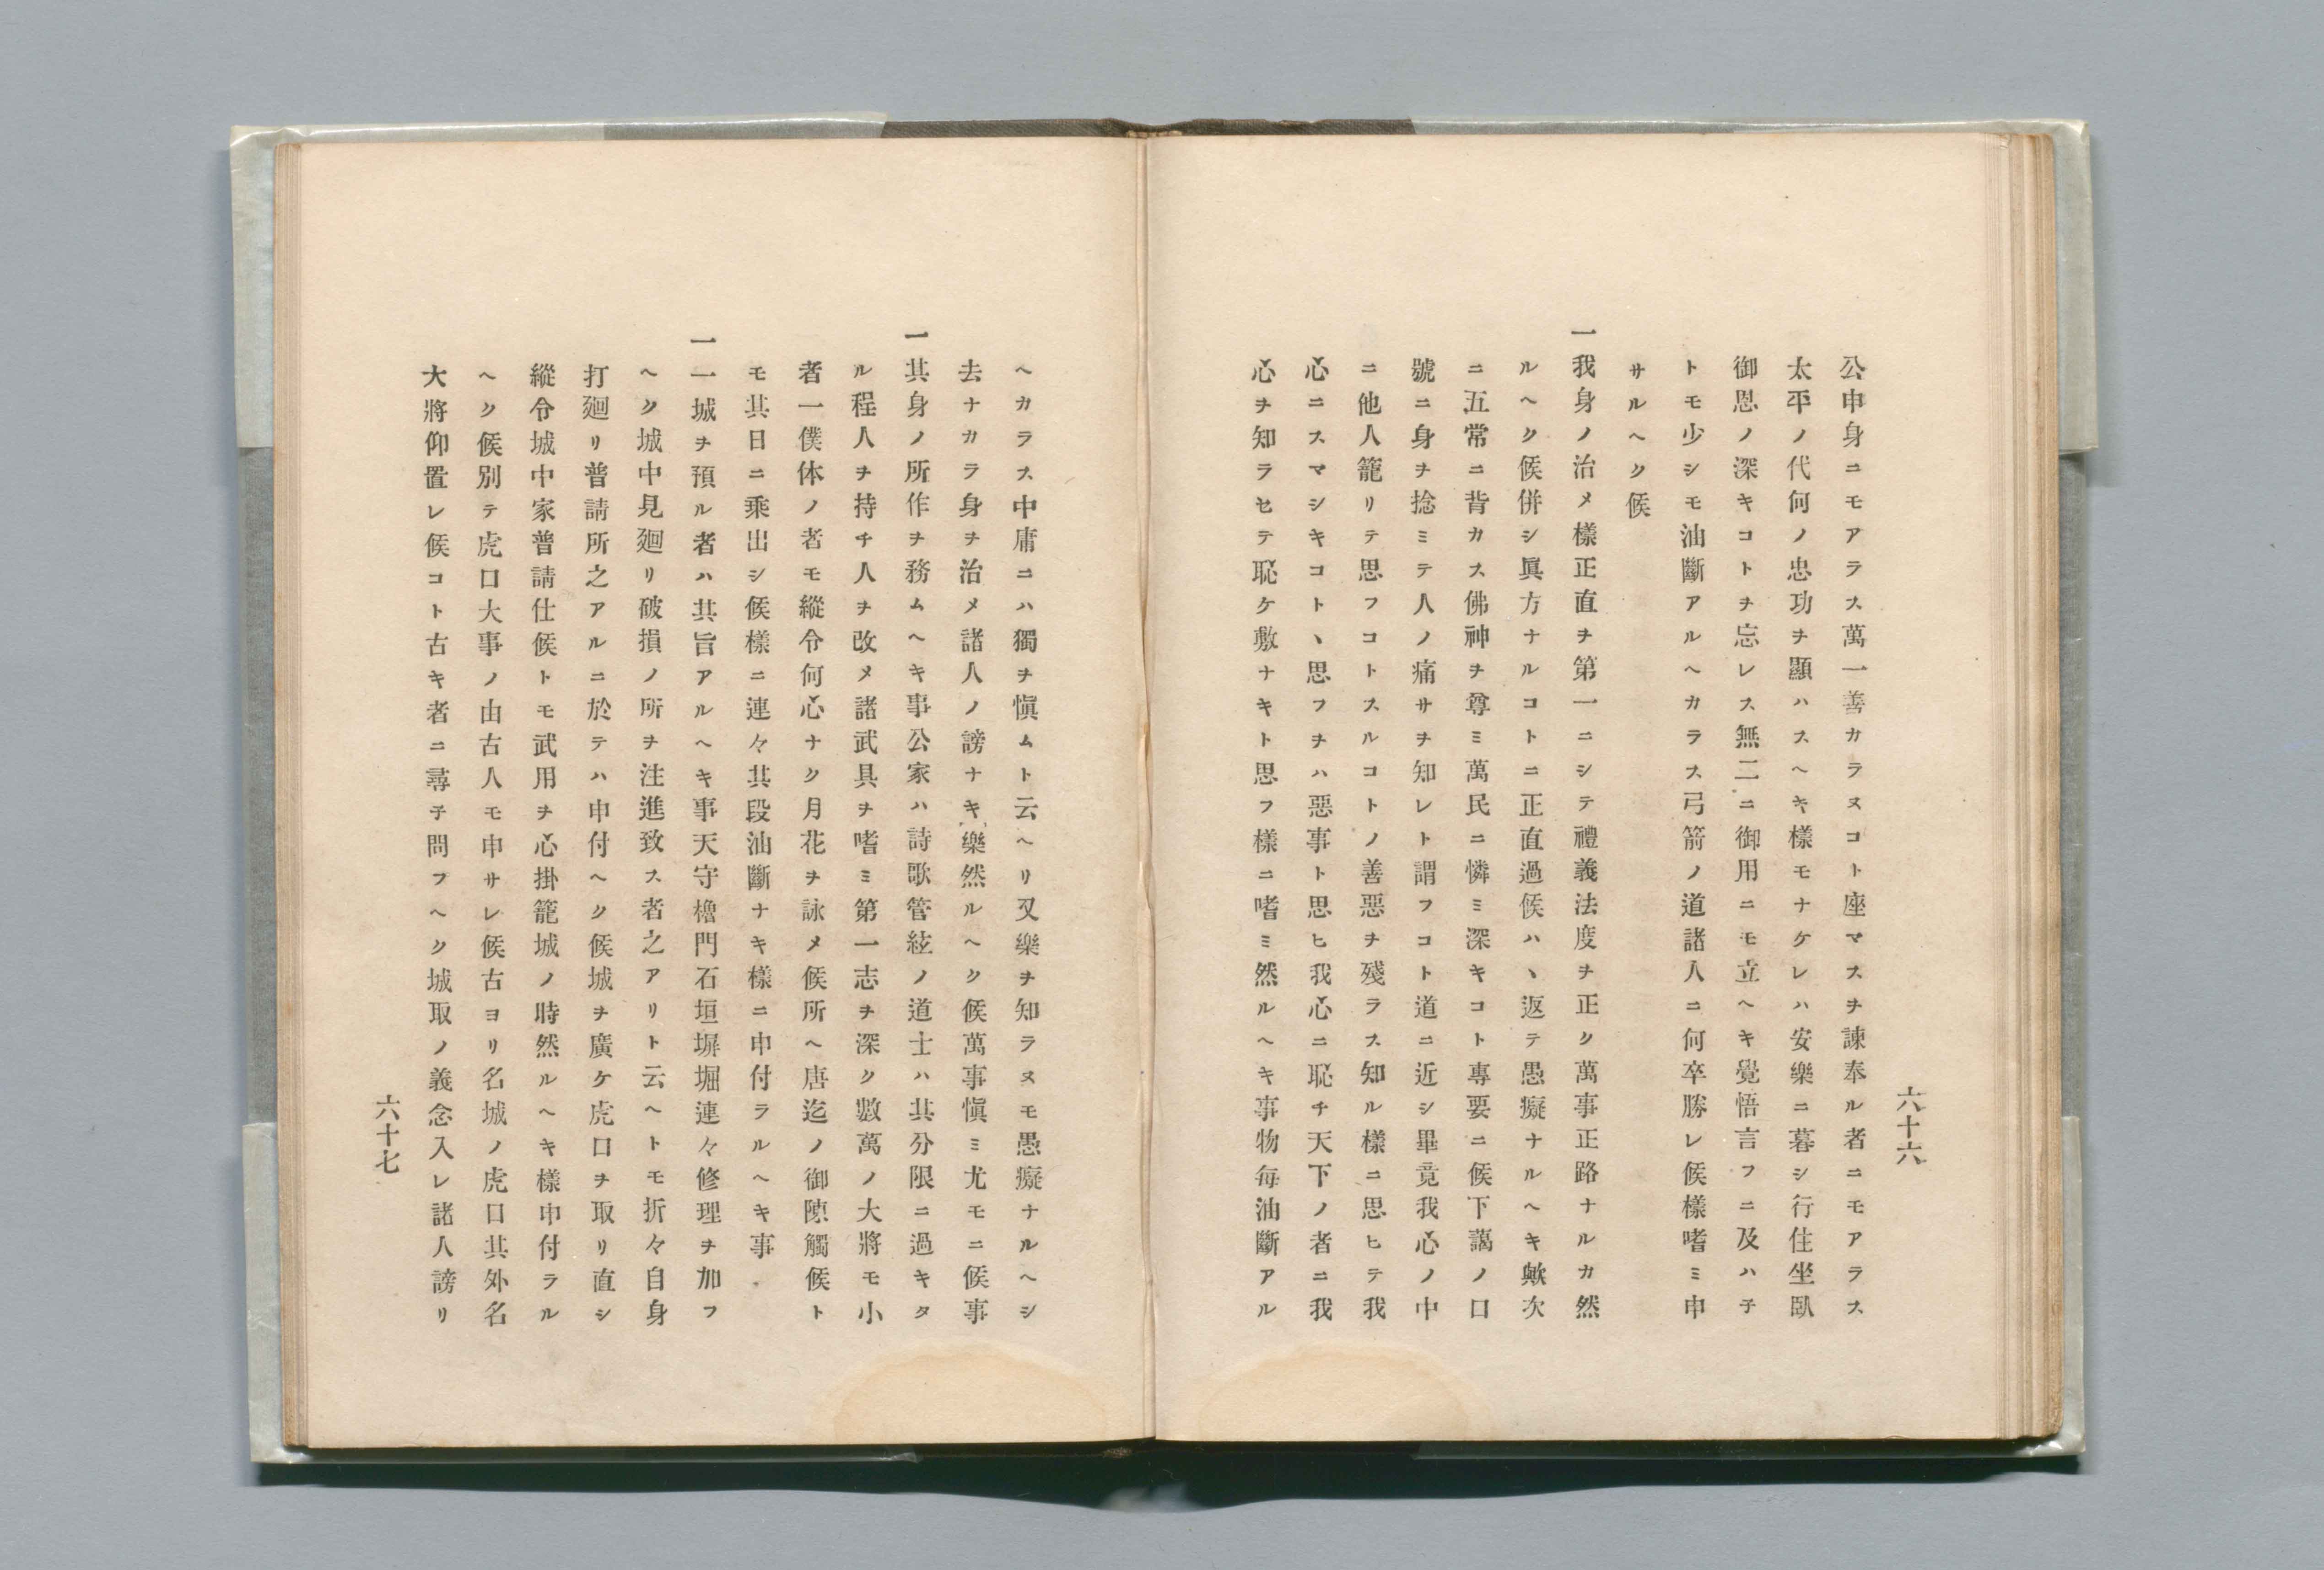 六十六
公申身ニモアラス萬一善カラヌコト座マスヲ諫奉ル者ニモアラス
太平ノ代何ノ忠功ヲ顯ハスヘキ樣モナケレハ安樂ニ暮シ行住坐臥
御恩ノ深キコトヲ忘レス無二ニ御用ニモ立ヘキ覺悟言フニ及ハ子
トモ少シモ油斷アルヘカラス弓箭ノ道諸人ニ何卒勝レ候樣嗜ミ申
サルヘク候
一我身ノ治メ樣正直ヲ第一ニシテ禮義法度ヲ正ク萬事正路ナルカ然
ルヘク候併シ眞方ナルコトニ正直過候ハヽ返テ愚癡ナルヘキ歟次
ニ五常ニ背カス佛神ヲ尊ミ萬民ニ憐ミ深キコト專要ニ候下藹ノ口
號ニ身ヲ捻ミテ人ノ痛サヲ知レト謂フコト道ニ近シ畢竟我心ノ中
ニ他人籠リテ思フコトスルコトノ善惡ヲ殘ラス知ル樣ニ思ヒテ我
心ニスマシキコトヽ思フヲハ惡事ト思ヒ我心ニ恥チ天下ノ者ニ我
心ヲ知ラセテ恥ケ敷ナキト思フ樣ニ嗜ミ然ルヘキ事物每油斷アル
ヘカラス中庸ニハ獨ヲ愼ムト云ヘリ又樂ヲ知ラヌモ愚癡ナルヘシ
去ナカラ身ヲ治メ諸人ノ謗ナキ樂然ルヘク候萬事愼ミ尤モニ候事
一其身ノ所作ヲ務ムヘキ事公家ハ詩歌管絃ノ道士ハ其分限ニ過キタ
ル程人ヲ持チ人ヲ改メ諸武具ヲ嗜ミ第一志ヲ深ク數萬ノ大將モ小
者一僕体ノ者モ縱令何心ナク月花ヲ詠メ候所ヘ唐迄ノ御陳觸候ト
モ其日ニ乘出シ候樣ニ連々其段油斷ナキ樣ニ申付ラルヘキ事
一一城ヲ預ル者ハ其旨アルヘキ事天守櫓門石垣塀堀連々修理ヲ加フ
ヘク城中見廻リ破損ノ所ヲ注進致ス者之アリト云ヘトモ折々自身
打廻リ普請所之アルニ於テハ申付ヘク候城ヲ廣ケ虎口ヲ取リ直シ
縱令城中家普請仕候トモ武用ヲ心掛籠城ノ時然ルヘキ樣申付ラル
ヘク候別テ虎口大事ノ由古人モ申サレ候古ヨリ名城ノ虎口其外名
大將仰置レ候コト古キ者ニ尋子問フヘク城取ノ義念入レ諸人謗リ
六十七